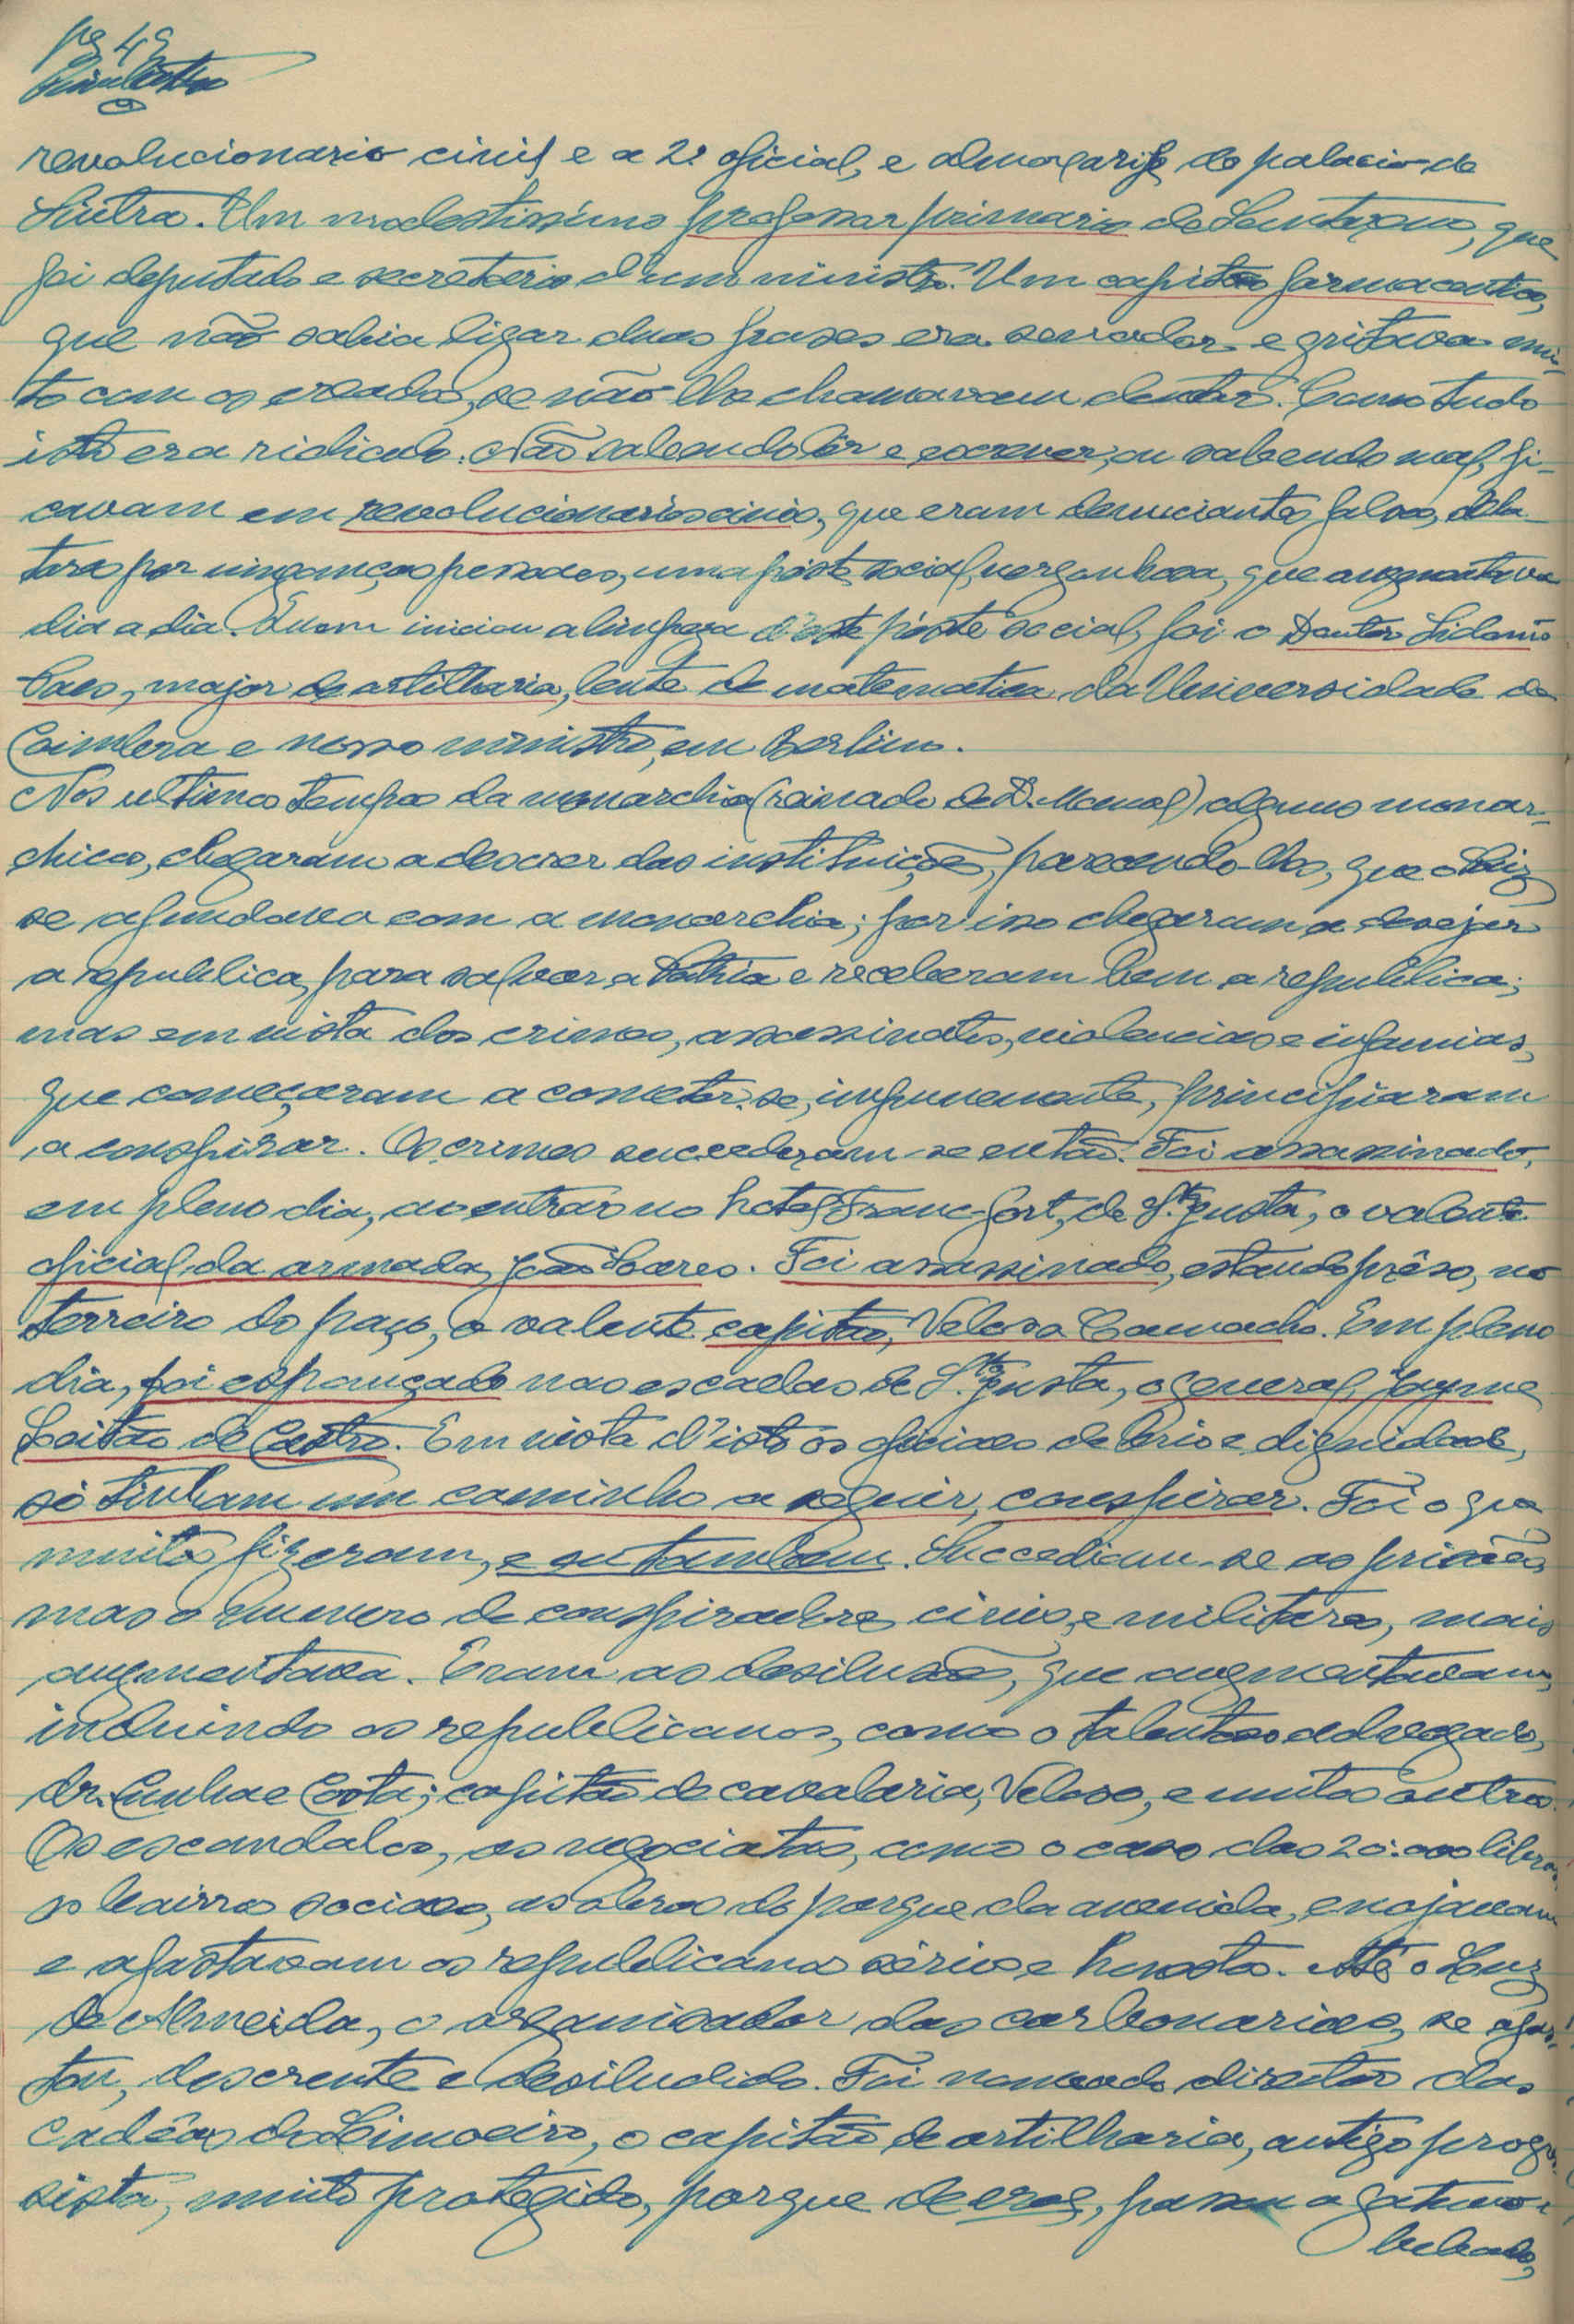 pg 49
revolucionario civil e a 2º oficial, e almoxarife do palacio de
Sintra. Um modestissimo professor primario de Santarem, que
foi deputado e secretario d'um ministro. Um capitão farmaceutico,
que não sabia ligar duas frases era senador e gritava mui-
to com os creados, se não lhe chamavam doutor. Como tudo
isto era ridiculo. Não sabendo lêr e escrever, ou sabendo mal, fi-
cavam em revolucionarios civis, que eram denunciantes falsos, dela-
tores por vinganças pessoaes, uma péste social, vergonhosa, que augmentava
dia a dia. Quem iniciou a limpeza d'esta péste social, foi o Doutor Sidonio
Paes, major de artilharia, lente de matematica da Universidade de
Coimbra e nosso ministro, em Berlim.
Nos ultimos tempos da monarchia (reinado de D. Manuel) alguns monar-
chicos, chegaram a descrer das instituições, parecendo-lhes, que o Paiz
se afundava com a monarchia; por isso chegaram a desejar
a republica, para salvar a Patria e receberam bem a republica;
mas em vista dos crimes, assassinatos, violencias e infamias,
que começaram a cometer-se, impunemente, principiaram
a conspirar. Os crimes succederam-se então. Foi assassinado,
em pleno dia, ao entrar no hotel Franc-fort, de Sta Justa, o valente
oficial da armada, João Soares. Foi assassinado, estando prêso, no
terreiro do paço, o valente capitão, Veloso Camacho. Em pleno
dia, foi espancado nas escadas de Sta Justa, o general Jayme
Leitão de Castro. Em vista d'isto os oficiaes de brio e dignidade,
só tinham um caminho a seguir, conspirar. Foi o que
muitos fizeram, e eu tambem. Succediam-se as prisões,
mas o numero de conspiradores civis e militares, mais
augmentava. Eram as desilusões, que augmentavam,
incluindo os republicanos, como o talentoso advogado,
dr. Cunha e Costa; capitão de cavalaria, Veloso, e muitos outros.
Os escandalos, as negociatas, como o caso das 20:000 libras,
os bairros sociaes, as obras do parque da avenida, enojavam
e afastavam os republicanos sérios e honestos. Até o Luz
de Almeida, o organisador das carbonarias, se afas-
tou, descrente e desiludido. Foi nomeado director das
Cadêas do Limoeiro, o capitão de artilharia, antigo progres-
sista, muito protegido, porque de , passou a gatuno e
bebado,